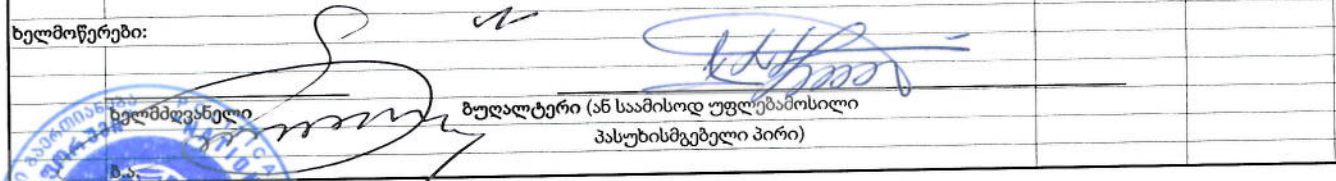 ხელმოწერები:
ხელმძღვანელი
ბუღალტერი (ან საამისოდ უფლებამოსილი
პასუხისმგებელი პირი)
ბ.ა.